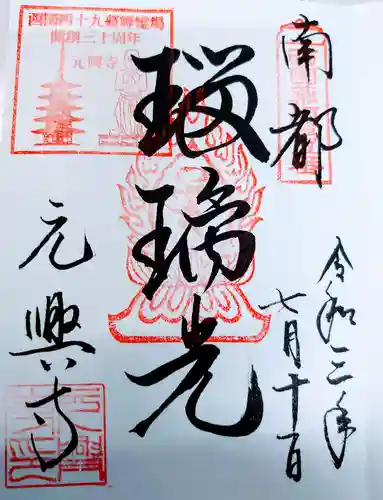 南都
瑠璃光
元興寺
令和三年
七月十一日
西国四十九薬師霊場
開創三十周年
元興寺